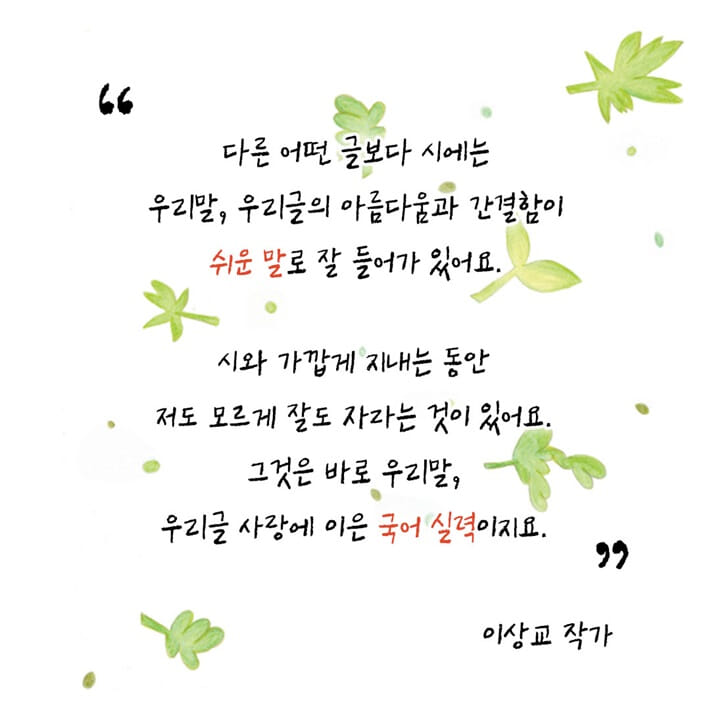 “
다른 어떤 글보다 시에는
우리말, 우리글의 아름다움과 간결함이
쉬운 말로 잘 들어가 있어요.
시와 가깝게 지내는 동안
저도 모르게 잘도 자라는 것이 있어요.
그것은 바로 우리말,
우리글 사랑에 이은 국어 실력이지요.
”
이상교 작가